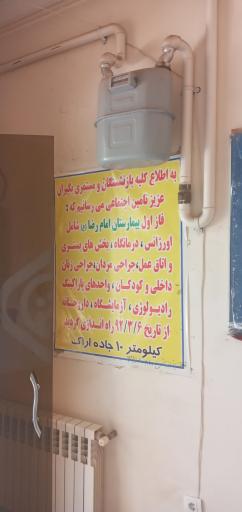 به اطلاع کلیه بازنشستگان و مستمری بگیران
عزیز تامین اجتماعی می رسانیم که :
فاز اول بیمارستان امام رضا (ع) شامل
اورژانس ، درمانگاه ، بخش های بستری
و اتاق عمل، جراحی مردان، جراحی زنان
داخلی و کودکان ، واحدهای پاراکلینیک
رادیولوژی ، آزمایشگاه ، داروخانه
از تاریخ ۹۲/۳/۶ راه اندازی گردید
کیلومتر ۱۰ جاده اراک